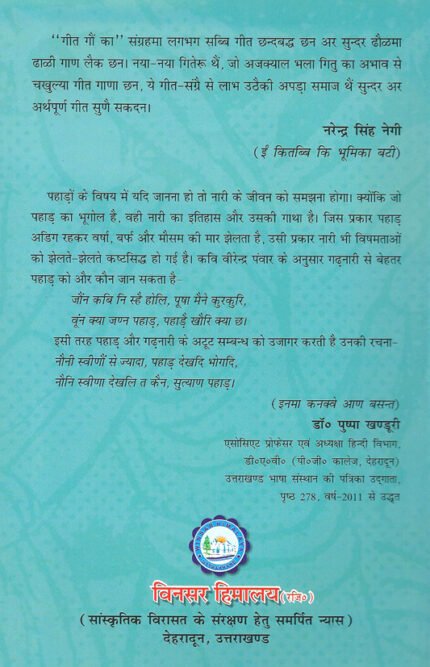 ‘‘गीत गौं का’’ संग्रहमा लगभग सब्बि गीत छन्दबद्ध छन अर सुन्दर ढौळमा
ढाळी गाण लैक छन। नया-नया गितेरू थैं, जो अजक्याल भला गितु का अभाव से
चखुल्या गीत गाणा छन, ये गीत-संग्रै से लाभ उठैकी अपड़ा समाज थैं सुन्दर अर
अर्थपूर्ण गीत सुणै सकदन।
नरेन्द्र सिंह नेगी
(ईं कितब्बि कि भूमिका बटी)
पहाड़ों के विषय में यदि जानना हो तो नारी के जीवन को समझना होगा। क्योंकि जो
पहाड़ का भूगोल है, वही नारी का इतिहास और उसकी गाथा है। जिस प्रकार पहाड़
अडिग रहकर वर्षा, बर्फ और मौसम की मार झेलता है, उसी प्रकार नारी भी विषमताओं
को झेलते-झेलते कष्टसिद्ध हो गई है। कवि वीरेन्द्र पंवार के अनुसार गढ़नारी से बेहतर
पहाड़ को और कौन जान सकता है-
जौंन कबि नि स्है होलि, पूषा मैने कुरकुरि,
वूंन क्या जण्न पहाड़, पहाड़ै खौरि क्या छ।
इसी तरह पहाड़ और गढ़नारी के अटूट सम्बन्ध को उजागर करती है उनकी रचना-
नौनी स्वीणों से ज्यादा, पहाड़ देखदि भोगदि,
नौनि स्वीणा देखलि त कैन, सुत्याण पहाड़।
(इनमा कनक्वे आण बसन्त)
डॉ० पुष्पा खण्डूरी
एसोसिएट प्रोफेसर एवं अध्यक्षा हिन्दी विभाग,
डी०ए०वी० (पी०जी० कालेज, देहरादून)
उत्तराखण्ड भाषा संस्थान की पत्रिका उद्गाता,
पृष्ठ 278, वर्ष-2011 से उद्धृत
विनसर हिमालय(रजि०)
(सांस्कृतिक विरासत के संरक्षण हेतु समर्पित न्यास)
देहरादून, उत्तराखण्ड